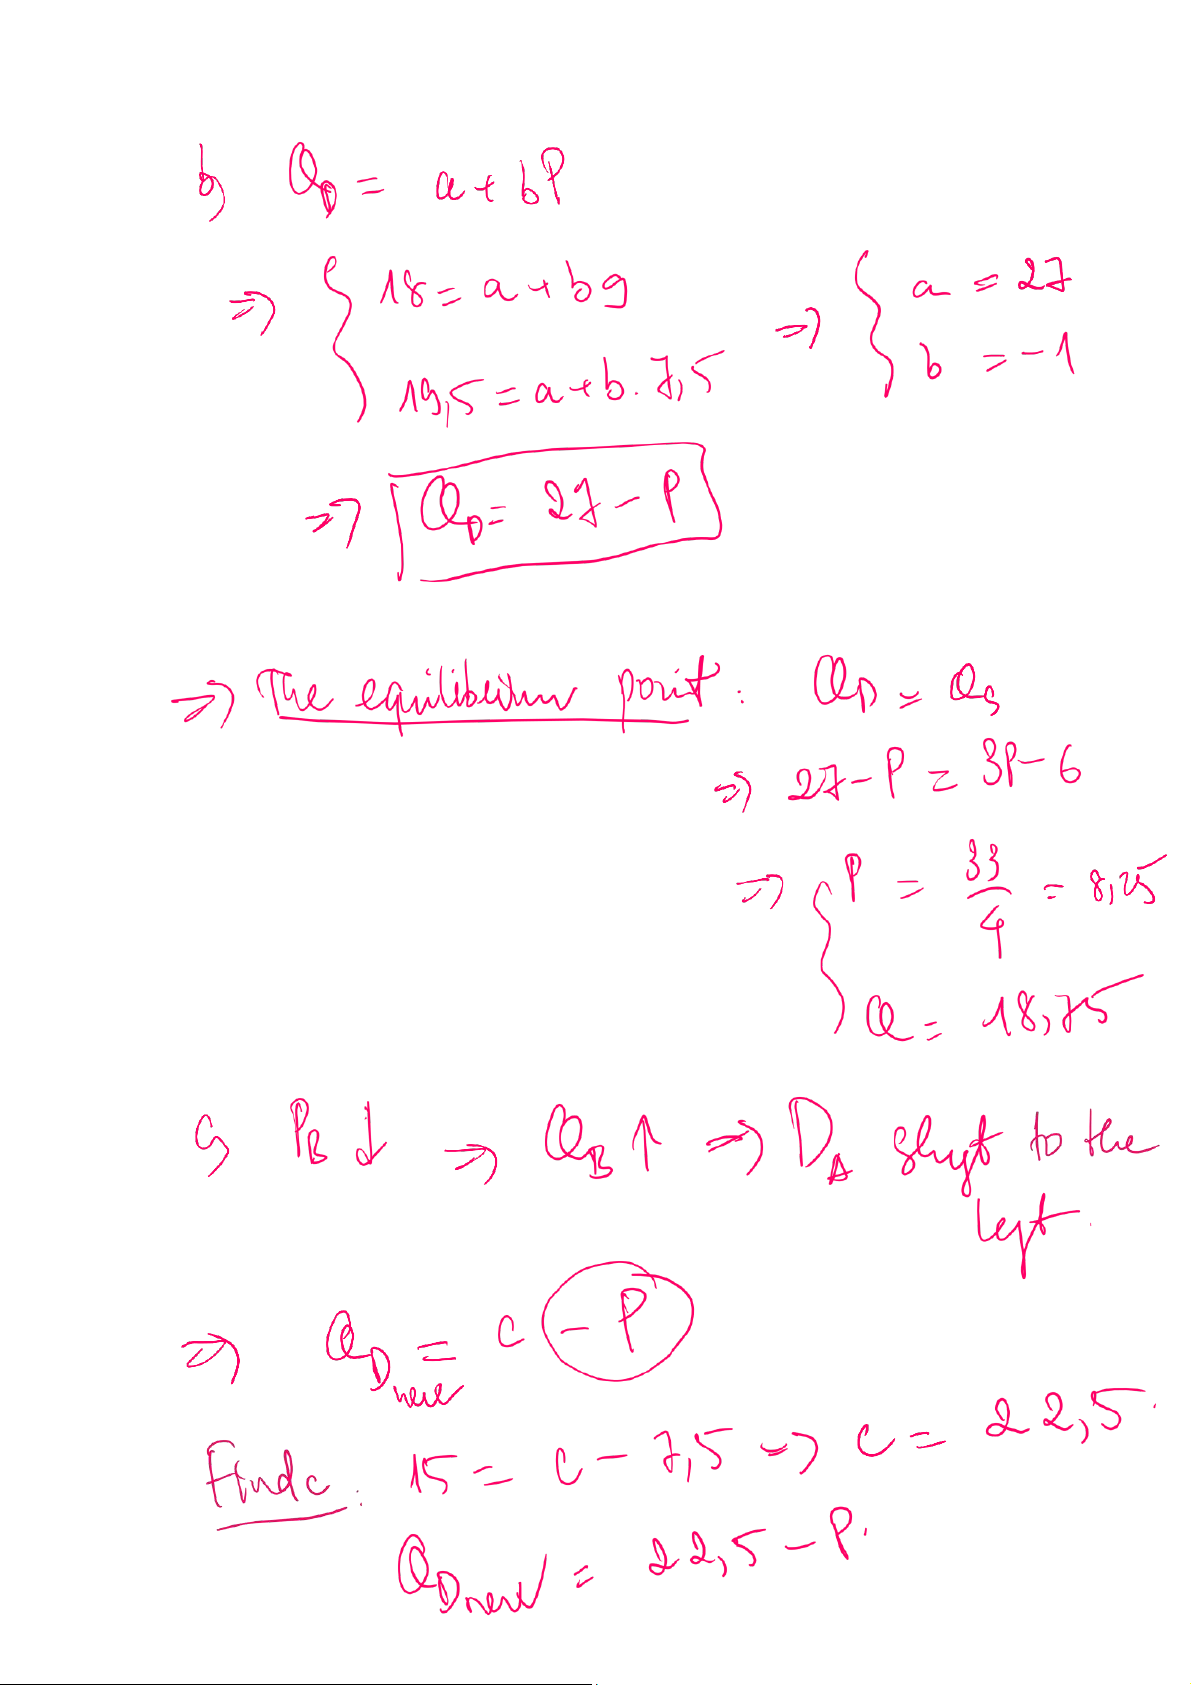 b) QD = a + bP
=> { 18 = a + b9 => { a = 27
19,5 = a + b. 7,5 b = -1
=> QD = 27 - P
=> The equilibrium point : QD = QS
=> 27 - P = 3P - 6
=> { P = 33/4 = 8,25
Q = 18,75
c) PB ↓ => QB ↑ => DA shift to the
left.
=> QDnew = c - P
Find c : 15 = c - 7,5 => c = 22,5.
QDnew = 22,5 - P.